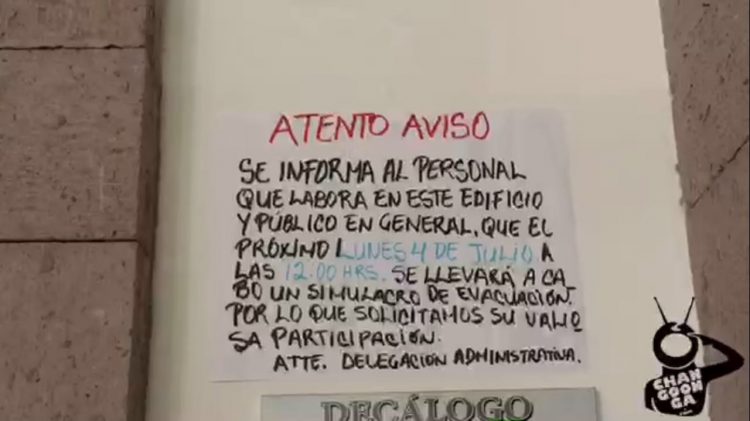 ATENTO AVISO
SE INFORMA AL PERSONAL
QUE LABORA EN ESTE EDIFICIO
Y PÚBLICO EN GENERAL, QUE EL
PRÓXIMO LUNES 4 DE JULIO A
LAS 12.00 HRS. SE LLEVARÁ A CA
BO UN SIMULACRO DE EVACUACIÓN.
POR LO QUE SOLICITAMOS SU VALIO
SA PARTICIPACIÓN.
ATTE. DELEGACIÓN ADMINISTRATIVA.
DECÁLOGO
CHAN
GOON
GA
.COM